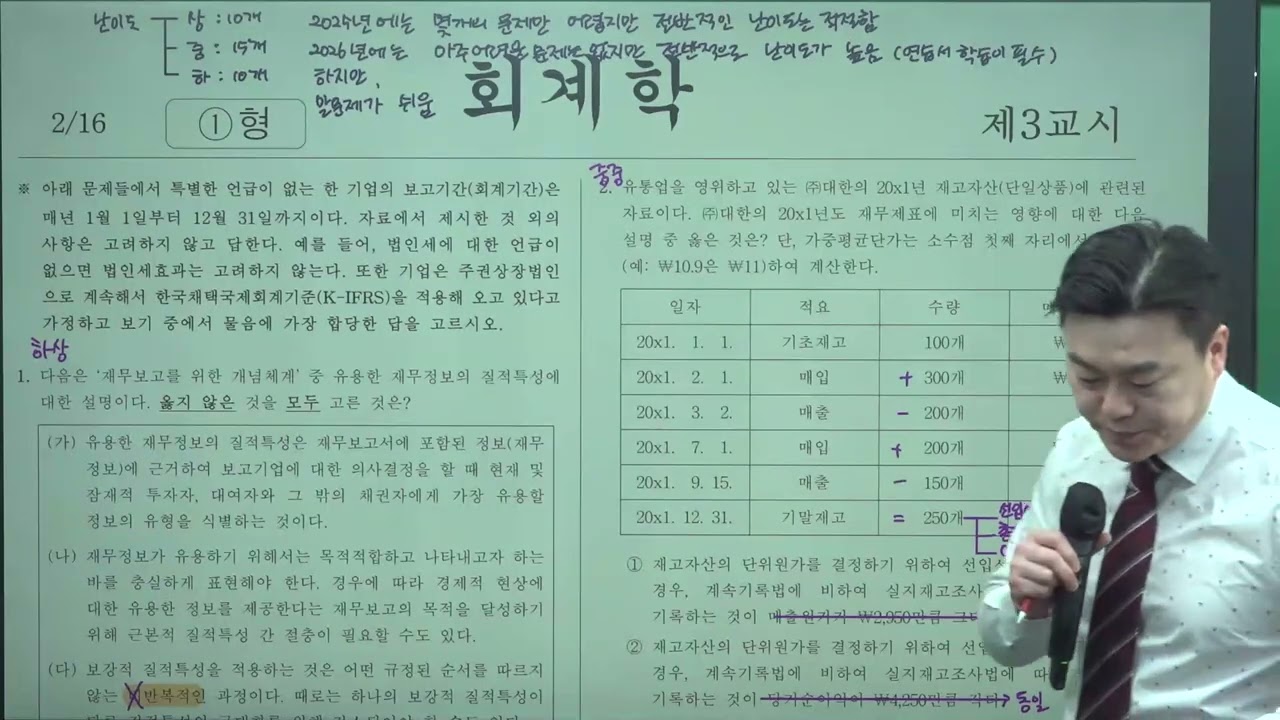 난이도 상 : 10개 2025년에는 몇개의 문제만 어렵지만 전반적인 난이도는 적절함
중 : 15개 2026년에는 아주어려운 문제는 없지만 전반적으로 난이도가 높음 (연습서 학습이 필수)
하 : 10개 하지만,
말문제가 쉬움
회계학
2/16
①형
제3교시
※ 아래 문제들에서 특별한 언급이 없는 한 기업의 보고기간(회계기간)은
매년 1월 1일부터 12월 31일까지이다. 자료에서 제시한 것 외의
사항은 고려하지 않고 답한다. 예를 들어, 법인세에 대한 언급이
없으면 법인세효과는 고려하지 않는다. 또한 기업은 주권상장법인
으로 계속해서 한국채택국제회계기준(K-IFRS)을 적용해 오고 있다고
가정하고 보기 중에서 물음에 가장 합당한 답을 고르시오.
하상
1. 다음은 ‘재무보고를 위한 개념체계’ 중 유용한 재무정보의 질적특성에
대한 설명이다. 옳지 않은 것을 모두 고른 것은?
(가) 유용한 재무정보의 질적특성은 재무보고서에 포함된 정보(재무
정보)에 근거하여 보고기업에 대한 의사결정을 할 때 현재 및
잠재적 투자자, 대여자와 그 밖의 채권자에게 가장 유용할
정보의 유형을 식별하는 것이다.
(나) 재무정보가 유용하기 위해서는 목적적합하고 나타내고자 하는
바를 충실하게 표현해야 한다. 경우에 따라 경제적 현상에
대한 유용한 정보를 제공한다는 재무보고의 목적을 달성하기
위해 근본적 질적특성 간 절충이 필요할 수도 있다.
(다) 보강적 질적특성을 적용하는 것은 어떤 규정된 순서를 따르지
않는 반복적인 과정이다. 때로는 하나의 보강적 질적특성이
중중
2. 유통업을 영위하고 있는 ㈜대한의 20x1년 재고자산(단일상품)에 관련된
자료이다. ㈜대한의 20x1년도 재무제표에 미치는 영향에 대한 다음
설명 중 옳은 것은? 단, 가중평균단가는 소수점 첫째 자리에서
(예: ₩10.9은 ₩11)하여 계산한다.
일자 적요 수량
20x1. 1. 1. 기초재고 100개 ₩
20x1. 2. 1. 매입 + 300개 ₩
20x1. 3. 2. 매출 - 200개
20x1. 7. 1. 매입 + 200개
20x1. 9. 15. 매출 - 150개
20x1. 12. 31. 기말재고 = 250개
① 재고자산의 단위원가를 결정하기 위하여
경우, 계속기록법에 비하여 실지재고조사
기록하는 것이 매출원가가 ₩2,950만큼
② 재고자산의 단위원가를 결정하기 위하여
경우, 계속기록법에 비하여 실지재고조사법에 따
기록하는 것이 당기순이익이 ₩4,250만큼 작다 → 동일